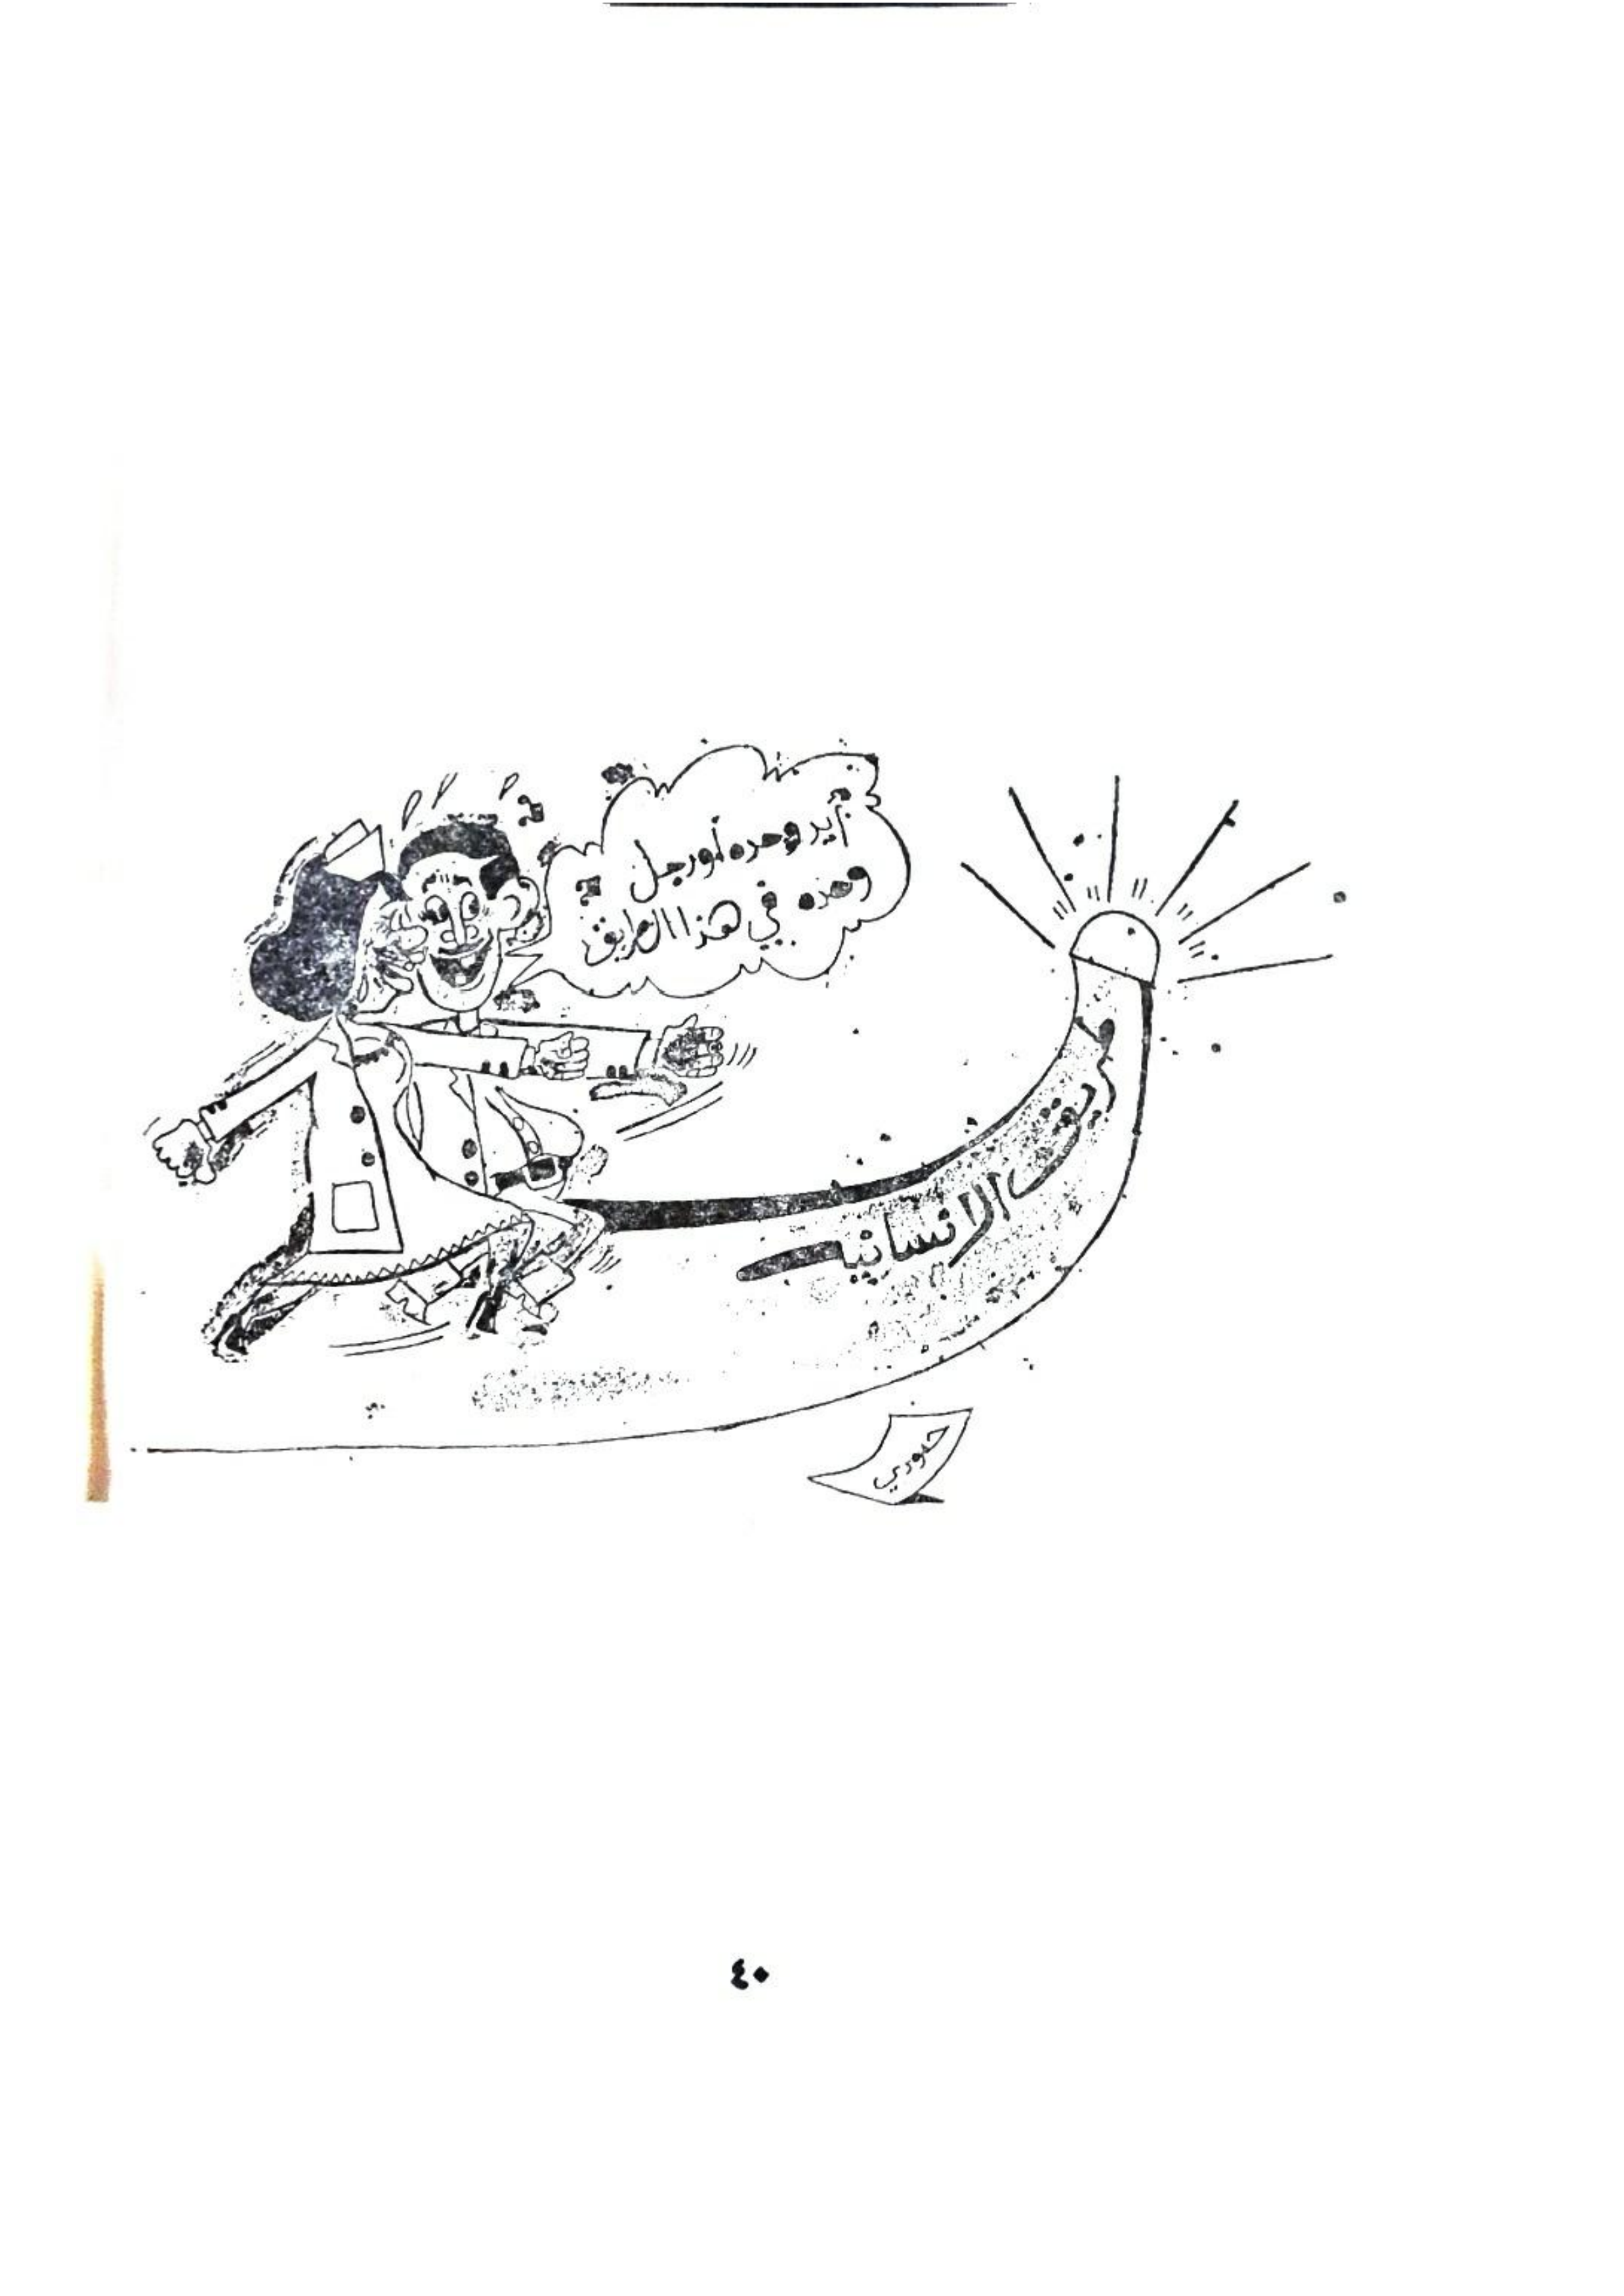 أيد وحده أو رجل
وحده في هذا الطريق
طريق الإنسانية
حدوري
٤٠